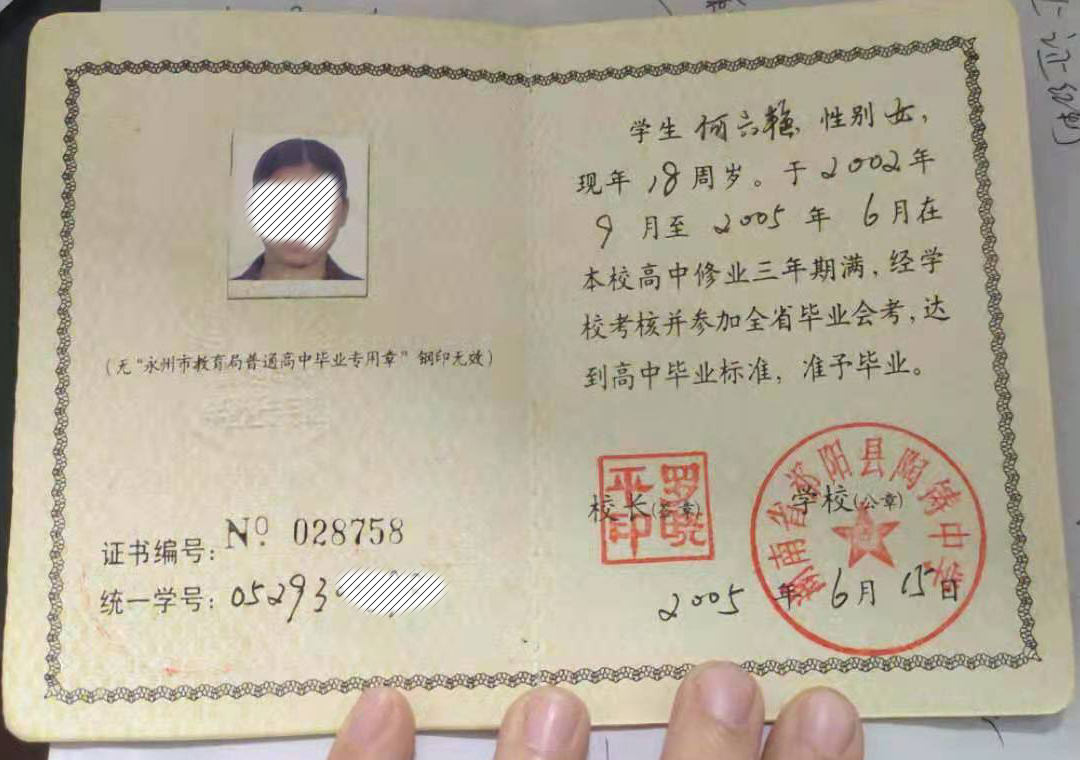 (无“永州市教育局普通高中毕业专用章”钢印无效)
证书编号: Nº 028758
统一学号: 05293
学生 何六艳 性别 女,
现年 18 周岁。于 2002 年
9 月至 2005 年 6 月在
本校高中修业三年期满,经学
校考核并参加全省毕业会考,达
到高中毕业标准,准予毕业。
校长(签章)
罗晓平印
学校(公章)
湖南省祁阳县陶铸中学
2005 年 6 月 15 日